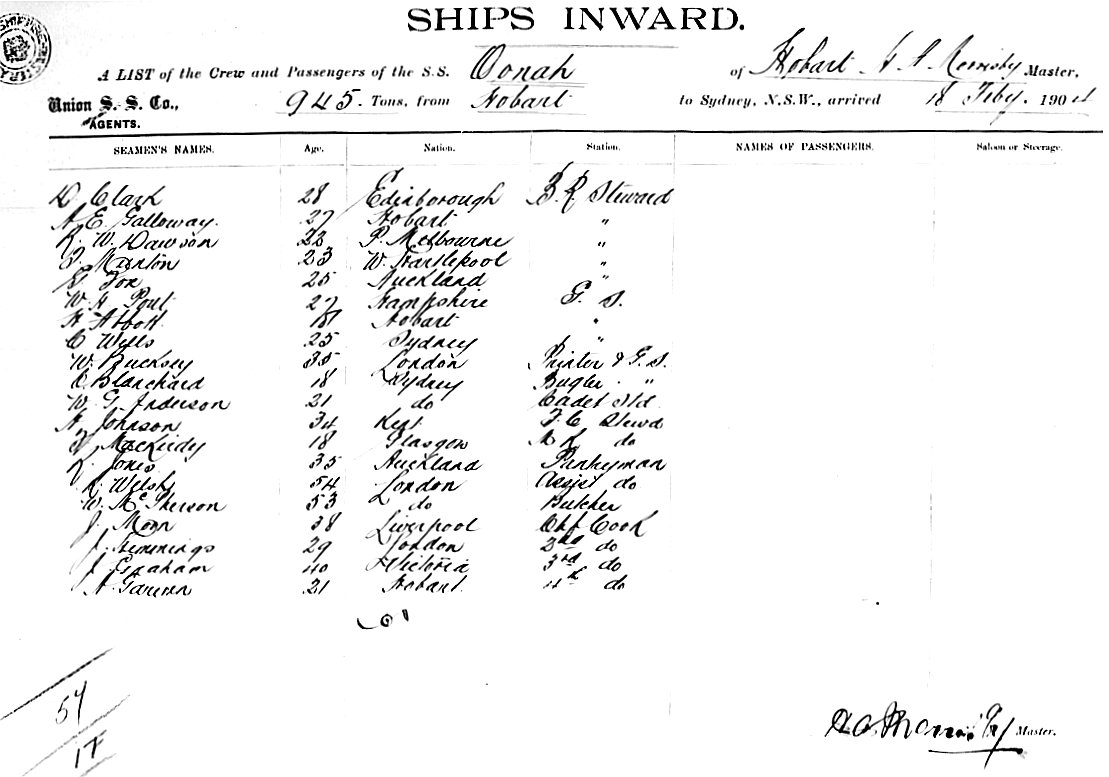 SHIPS INWARD.
A LIST of the Crew and Passengers of the S.S. Oonah of Hobart Master,
Union S. S. Co., 945. Tons, from Hobart to Sydney, N.S.W., arrived 18 Feby. 1904
AGENTS.
SEAMEN'S NAMES. Age. Nation. Station. NAMES OF PASSENGERS. Saloon or Steerage.
D. Clark 28 Edinborough Steward
A. E. Galloway. 27 Hobart "
R. W. Dawson 22 P. Melbourne "
Manton 23 W. Hartlepool "
Fox 25 Auckland "
W. H. Pout 27 Hampshire G. S.
H. Abbott 18 Hobart "
C Wells 25 Sydney "
W. Bucksey 35 London Printer & G. S.
C. Blanchard 18 Sydney Bugler "
W. G. Anderson 21 do Cadet Std
A. Johnson 34 Kent F. C. Stewd
18 Glasgow do
R. Jones 35 Auckland Pantryman
Welsh 54 London Assist do
W. McPherson 53 do Butcher
J. Moon 38 Liverpool Chf Cook
J. 29 London 2nd do
J. Graham 40 Victoria 3rd do
A. 21 Hobart 4th do
Master.